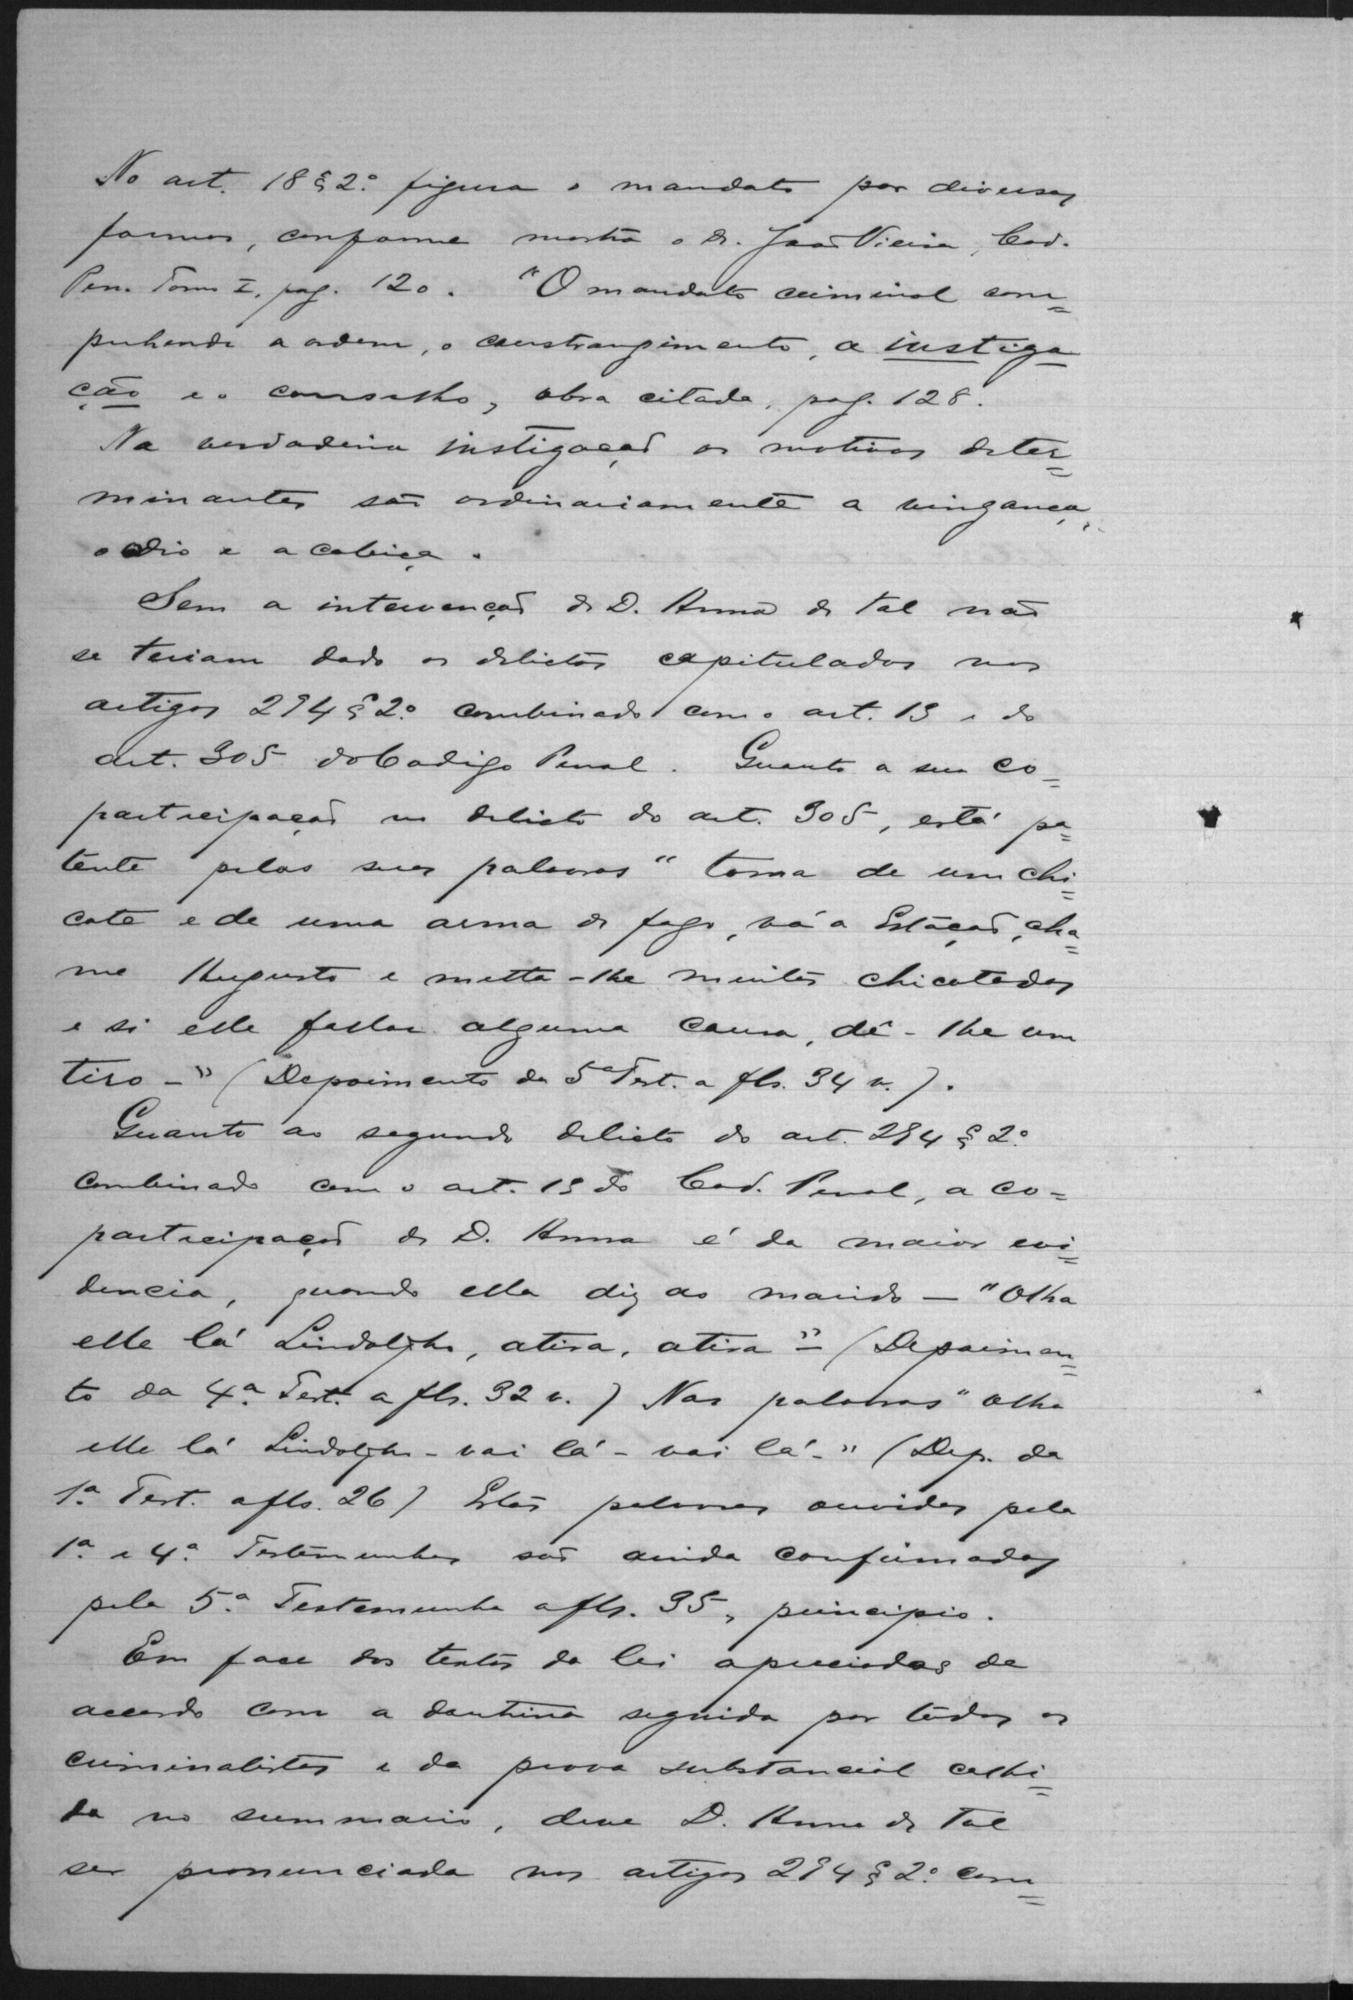 No art. 18 § 2º figura o mandato por diversas
formas, conforme mostra o dr. João Vieira, Cod.
Pen. Tomo I, pag. 120. "O mandato criminal com=
prehende a ordem, o constrangimento, a instiga
ção e o conselho, obra citada, pag. 128.
Na verdadeira instigação os motivos deter=
minantes são ordinariamente a vingança,
o odio e a cobiça.
Sem a intervenção de D. Anna de tal não
se teriam dado os delictos capitulados nos
artigos 294 § 2º combinado com o art. 13 e do
art. 305 do Codigo Penal. Quanto a sua co=
participação no delicto do art. 305, está pa=
tente pelas suas palavras "toma de um chi=
cote e de uma arma de fogo, vá a Estação, cha=
me Augusto e metta-lhe muitas chicotadas
e si elle fallar alguma causa, dê-lhe um
tiro-" (Depoimento da 5ª Test. a fls. 34 v.).
Quanto ao segundo delicto do art. 294 § 2º
combinado com o art. 13 do Cod. Penal, a co=
participação de D. Anna é da maior evi=
dencia, quando ella diz ao marido — "Olha
elle lá Lindolpho, atira, atira"- (Depoimen=
to da 4ª Test. a fls. 32 v.) Nas palavras "olha
elle lá Lindolpho - vai lá - vai lá-" (Dep. da
1ª Test. a fls. 26) Estas palavras ouvidas pela
1ª e 4ª Testemunhas são ainda confirmadas
pela 5ª Testemunha a fls. 35, principio.
Em face dos textos da lei apreciados de
accordo com a doutrina seguida por todos os
criminalistas e da prova substancial colhi=
da no summario, deve D. Anna de tal
ser pronunciada nos artigos 294 § 2º com=